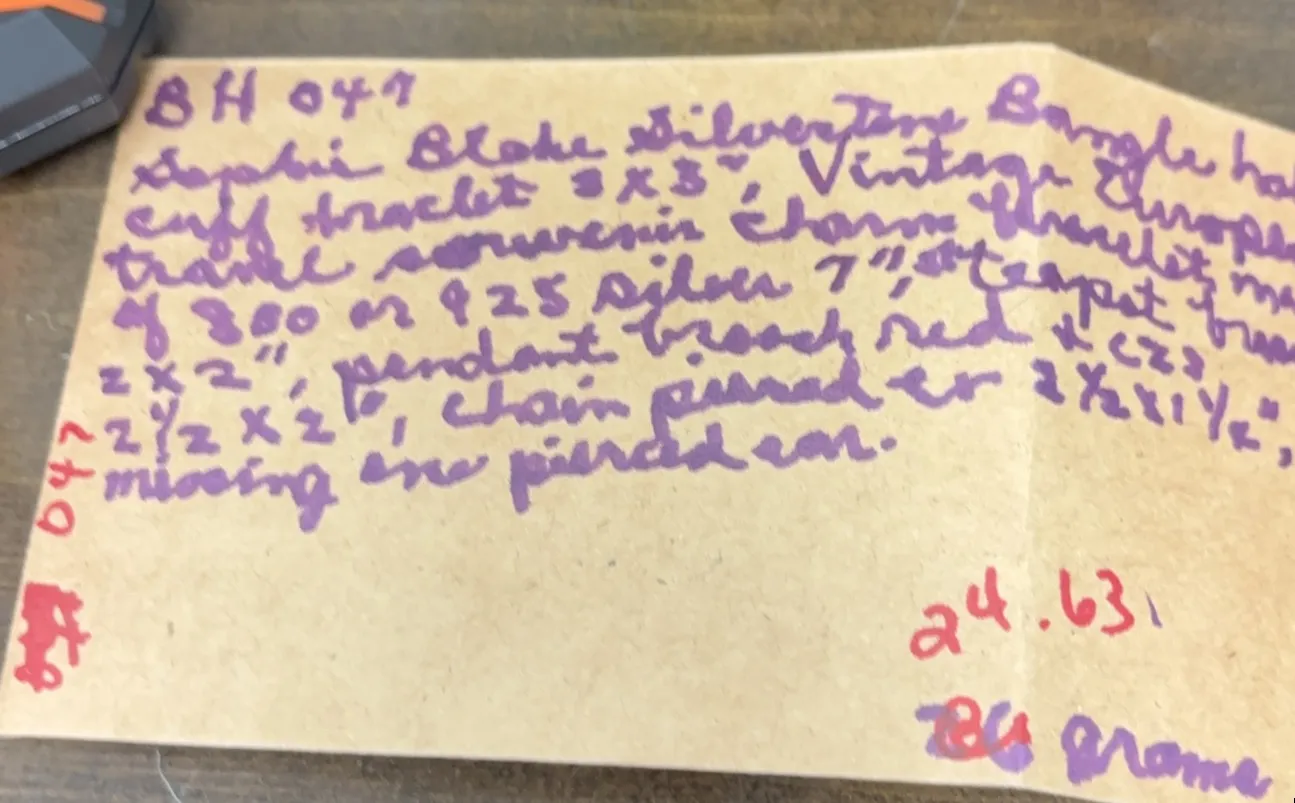 BH 047
Sophie Blake Silvertone Bangle
cuff braclet 3 x 3", Vintage
travel souvenir charm braclet,
of 800 or 925 silver 7", teapot
2 x 2", pendant brooch red
2 1/2 x 2", chain pierced er 2 1/2 x 1 1/2",
missing one pierced ear.
047
24.63
grams